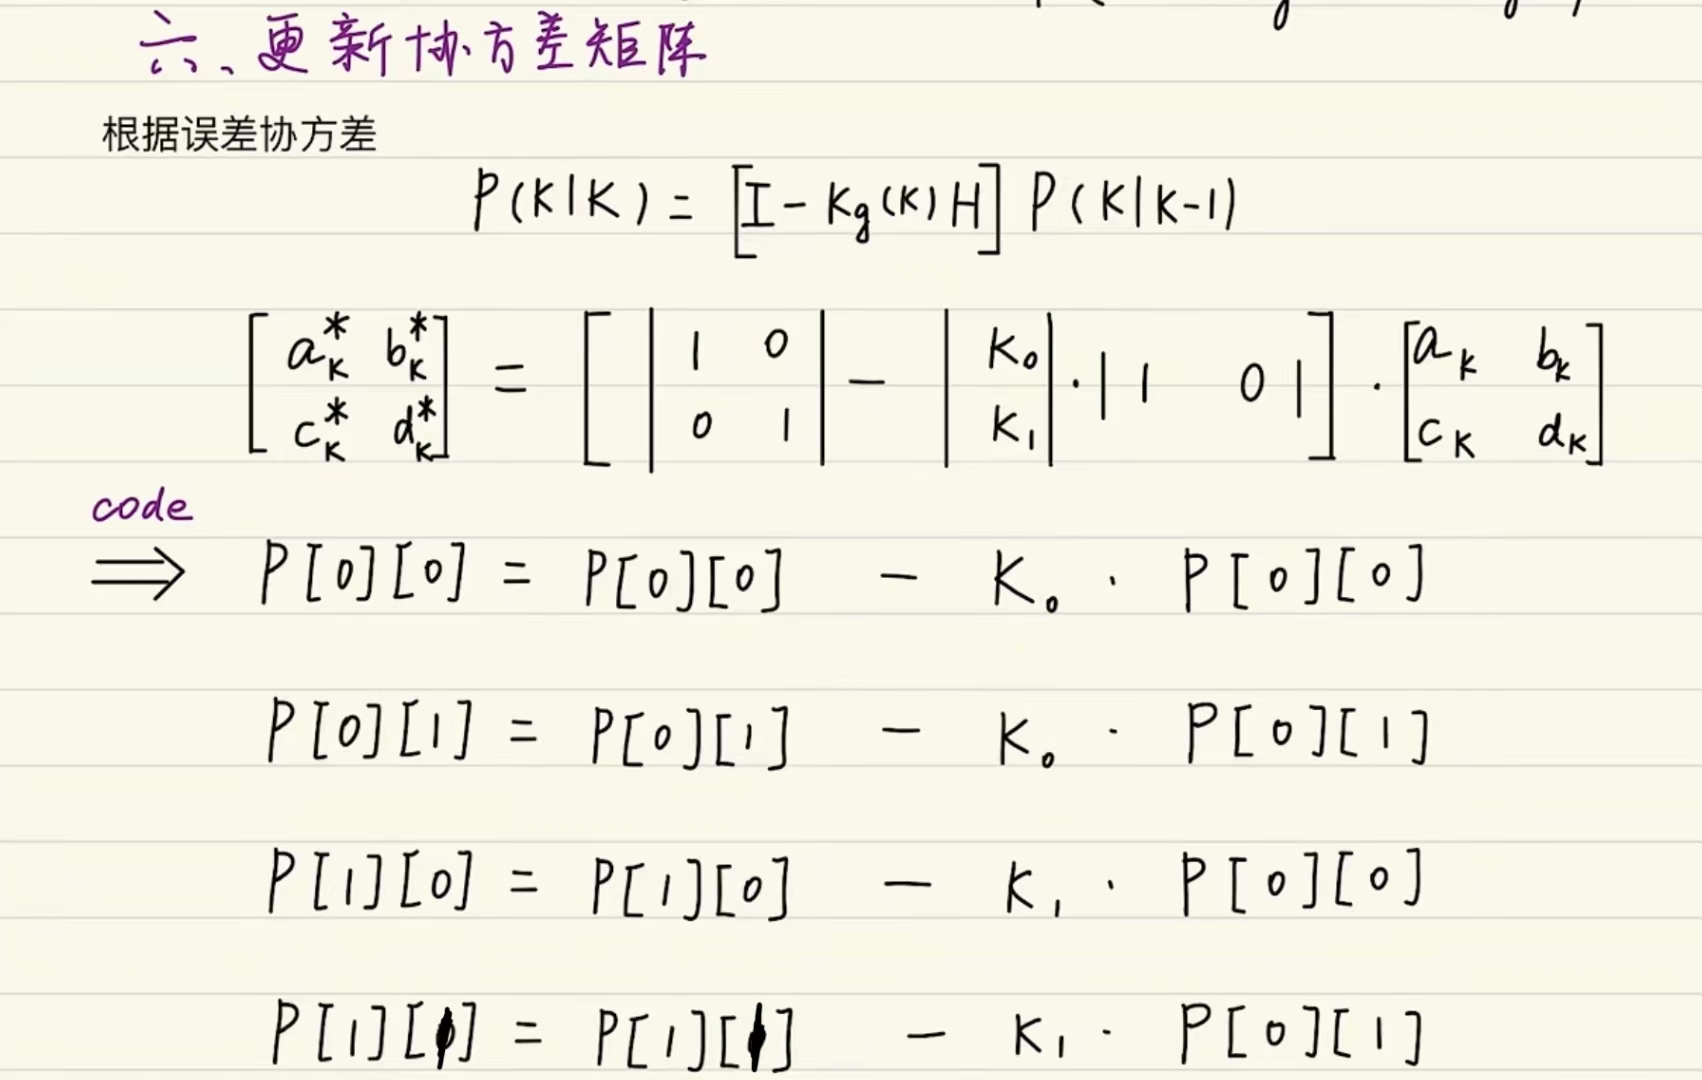 六、更新协方差矩阵
根据误差协方差
P(K|K) = [I - Kg(K) H] P(K|K-1)
[a*K b*K c*K d*K] = [|1 0 0 1| - |K0 K1| · |1 0|] · [aK bK cK dK]
code
⇒ P[0][0] = P[0][0] - K0 · P[0][0]
P[0][1] = P[0][1] - K0 · P[0][1]
P[1][0] = P[1][0] - K1 · P[0][0]
P[1][1] = P[1][1] - K1 · P[0][1]